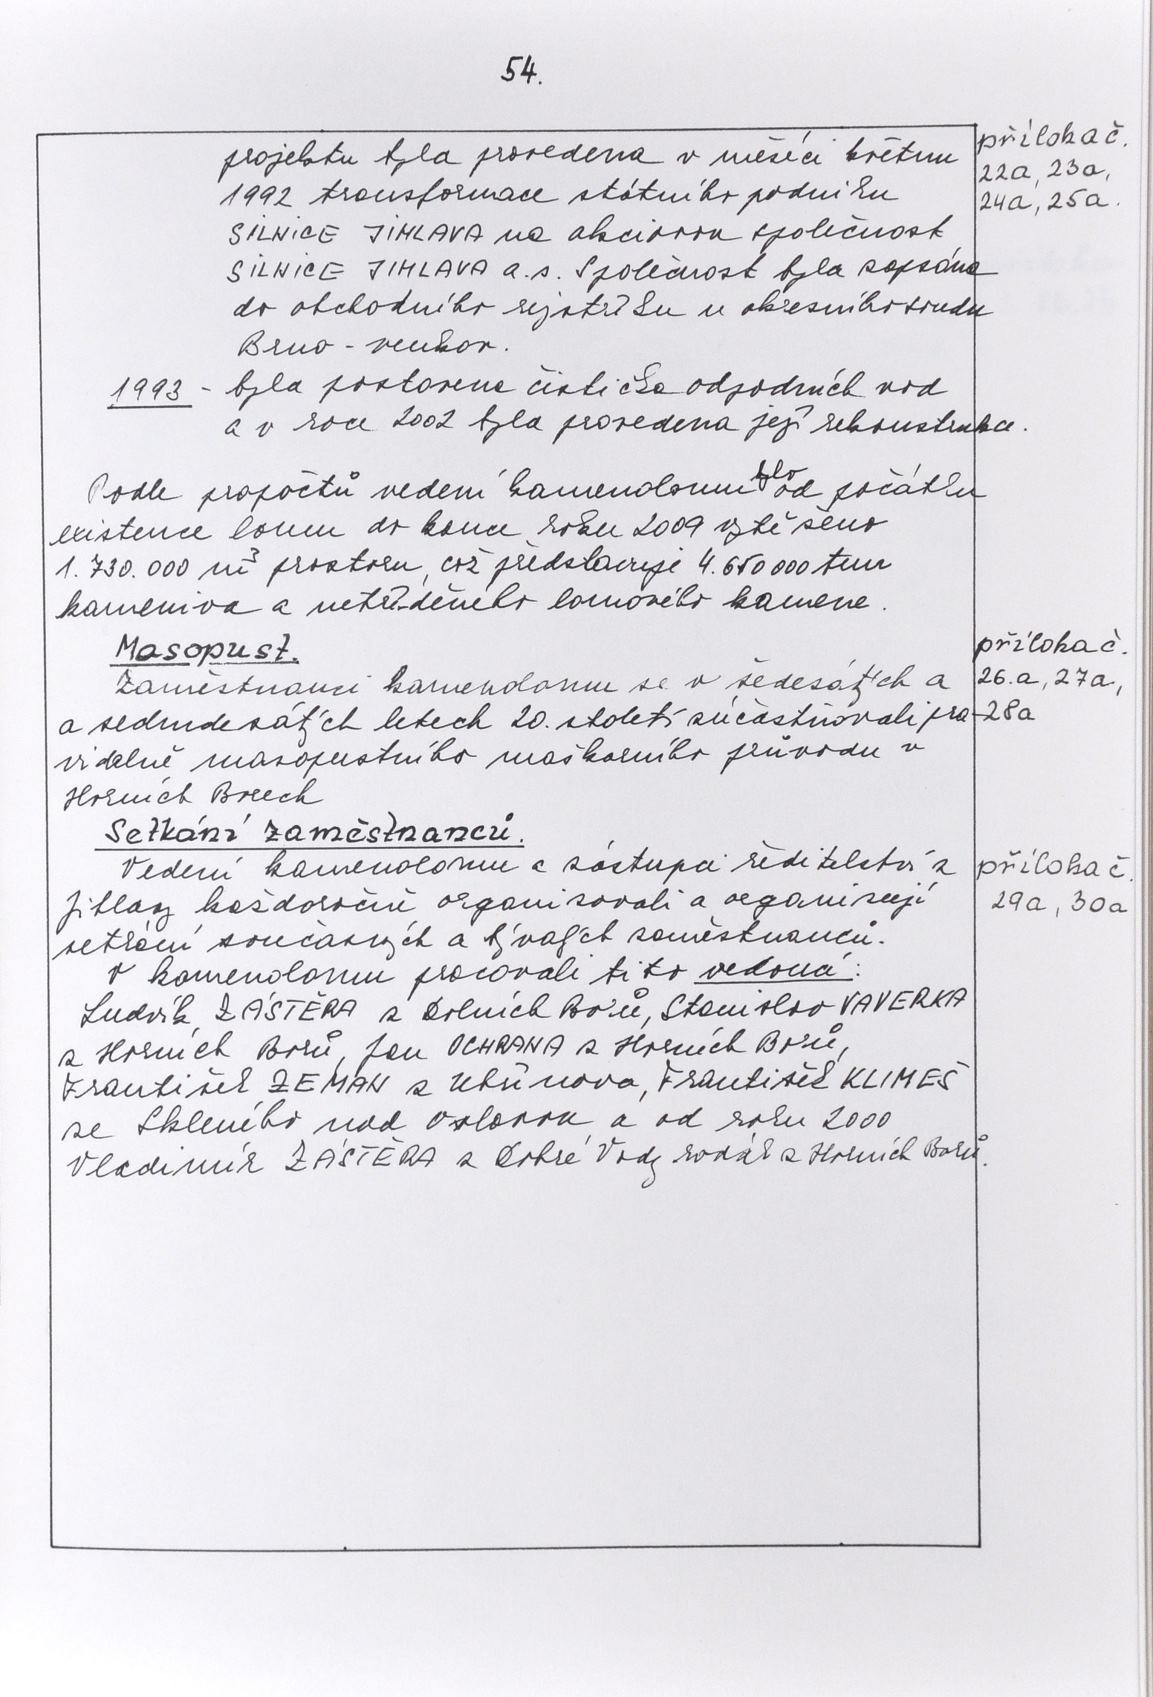 54.
projektu byla provedena v měsíci květnu
příloha č.
22a, 23a,
24a, 25a.
1992 transformace státního podniku
SILNICE JIHLAVA na akciovou společnost
SILNICE JIHLAVA a.s. Společnost byla zapsána
do obchodního rejstříku u okresního soudu
Brno - venkov.
1993 - byla postavena čistička odpadních vod
a v roce 2002 byla provedena její rekonstrukce.
Podle propočtů vedení kamenolomu bylo od počátku
existence lomu do konce roku 2009 vytěženo
1.730.000 m³ prostoru, což představuje 4.650000 tun
kameniva a netříděného lomového kamene.
Masopust.
příloha č.
26.a, 27a,
28a
Zaměstnanci kamenolomu se v šedesátých a
a sedmdesátých letech 20. století zúčastňovali pra-
videlně masopustního maškarního průvodu v
Horních Borech
Setkání zaměstnanců.
Vedení kamenolomu a zástupci ředitelství z
příloha č.
29a, 30a
Jihlavy každoročně organizovali a organizují
setkání současných a bývalých zaměstnanců.
V kamenolomu pracovali tito vedoucí:
Ludvík ZÁŠTĚRA z Dolních Borů, Stanislav VAVERKA
z Horních Borů, Jan OCHRANA z Horních Borů,
František ZEMAN z Uhřínova, František KLIMEŠ
ze Skleného nad Oslavou a od roku 2000
Vladimír ZÁŠTĚRA z Dobré Vody rodák z Horních Borů.